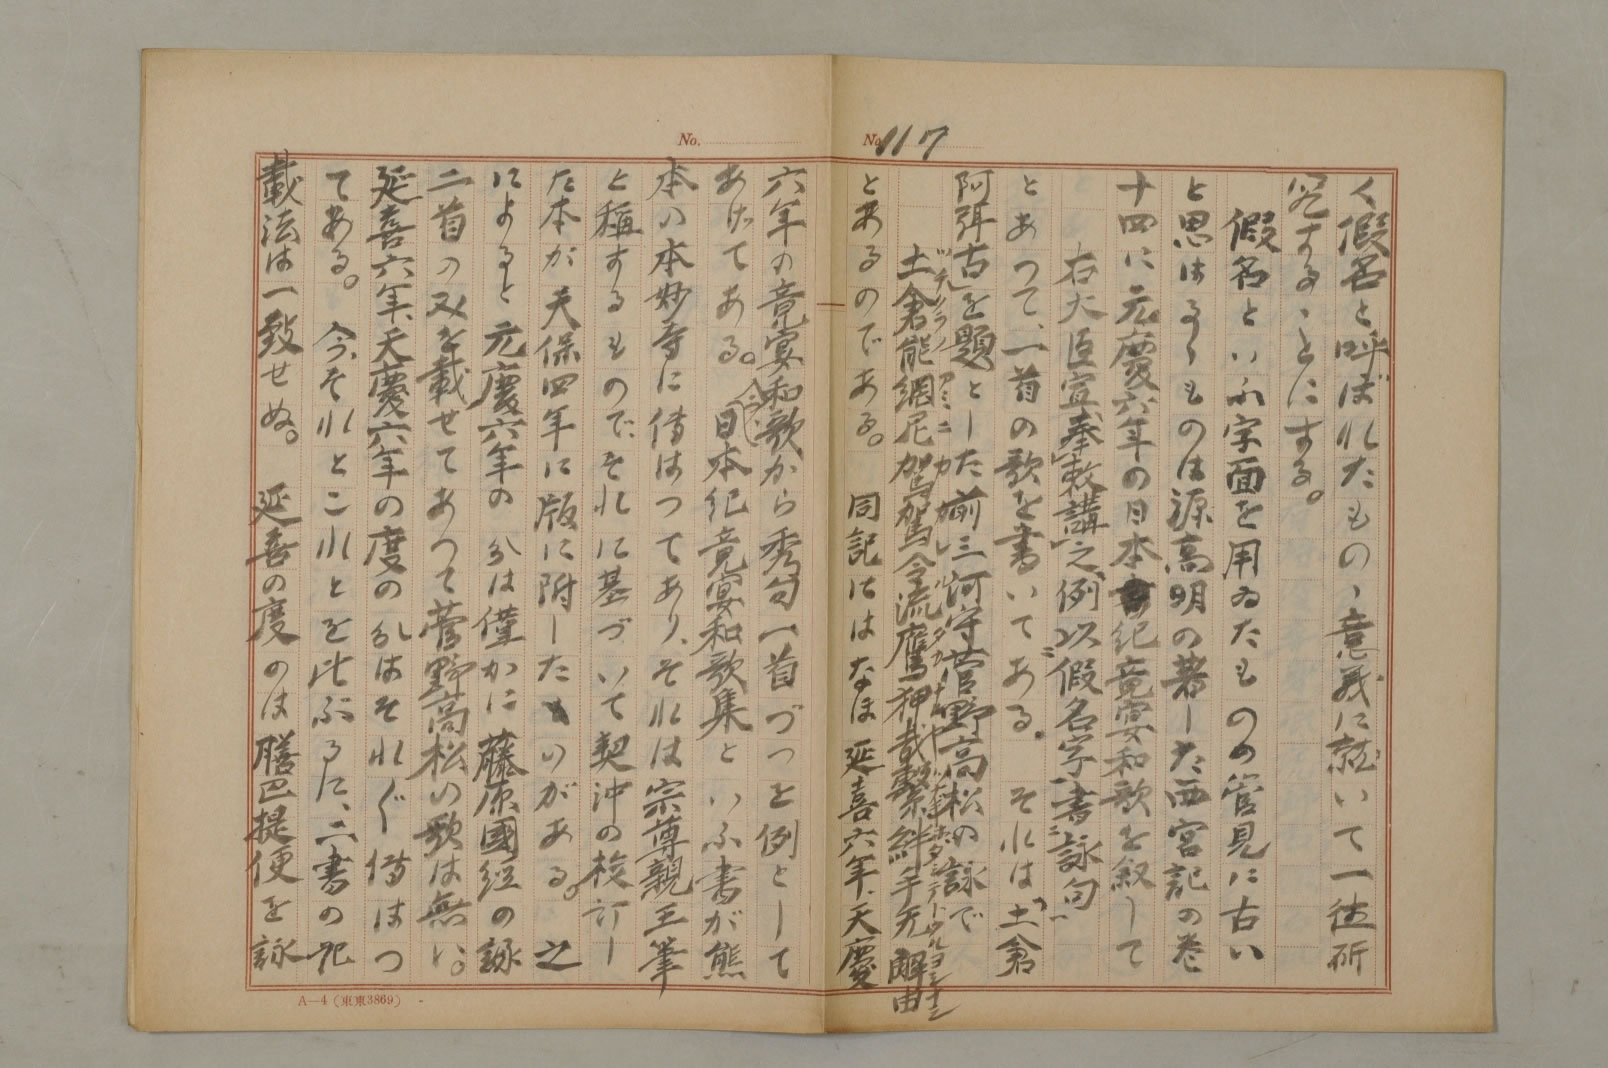 No. 117
く假名と呼ばれたものゝ意義に就いて一往研
究することにする。
假名といふ字面を用ゐたものゝ管見に古い
と思はるゝものは源高明の著した西宮記の巻
十四に元慶六年の日本紀竟宴和歌を敍して
右大臣宣奉敕講之例以假名字書詠句
とあつて、一首の歌を書いてある。それは「土倉
阿弭古」を題とした前三河守菅野高松の詠で
土倉能網尼駕駕令流鷹狎載繫絆手无解由
とあるのである。同記にはなほ延喜六年、天慶
No.
六年の竟宴和歌から秀句一首づつを例として
あげてある。今、日本紀竟宴和歌集といふ書が熊
本の本妙寺に傳はつてあり、それは宗尊親王筆
と稱するもので、それに基づいて契沖の校訂し
た本が天保四年に版に附したものがある。之
によると元慶六年の分は僅かに藤原國經の詠
二首のみを載せてあつて菅野高松の歌は無い。
延喜六年、天慶六年の度の分はそれ〲傳はつ
てある。今、それとこれとを比ぶるに、二書の記
載法は一致せぬ。延喜の度のは膳巴提便を詠
A—4（東東3869）